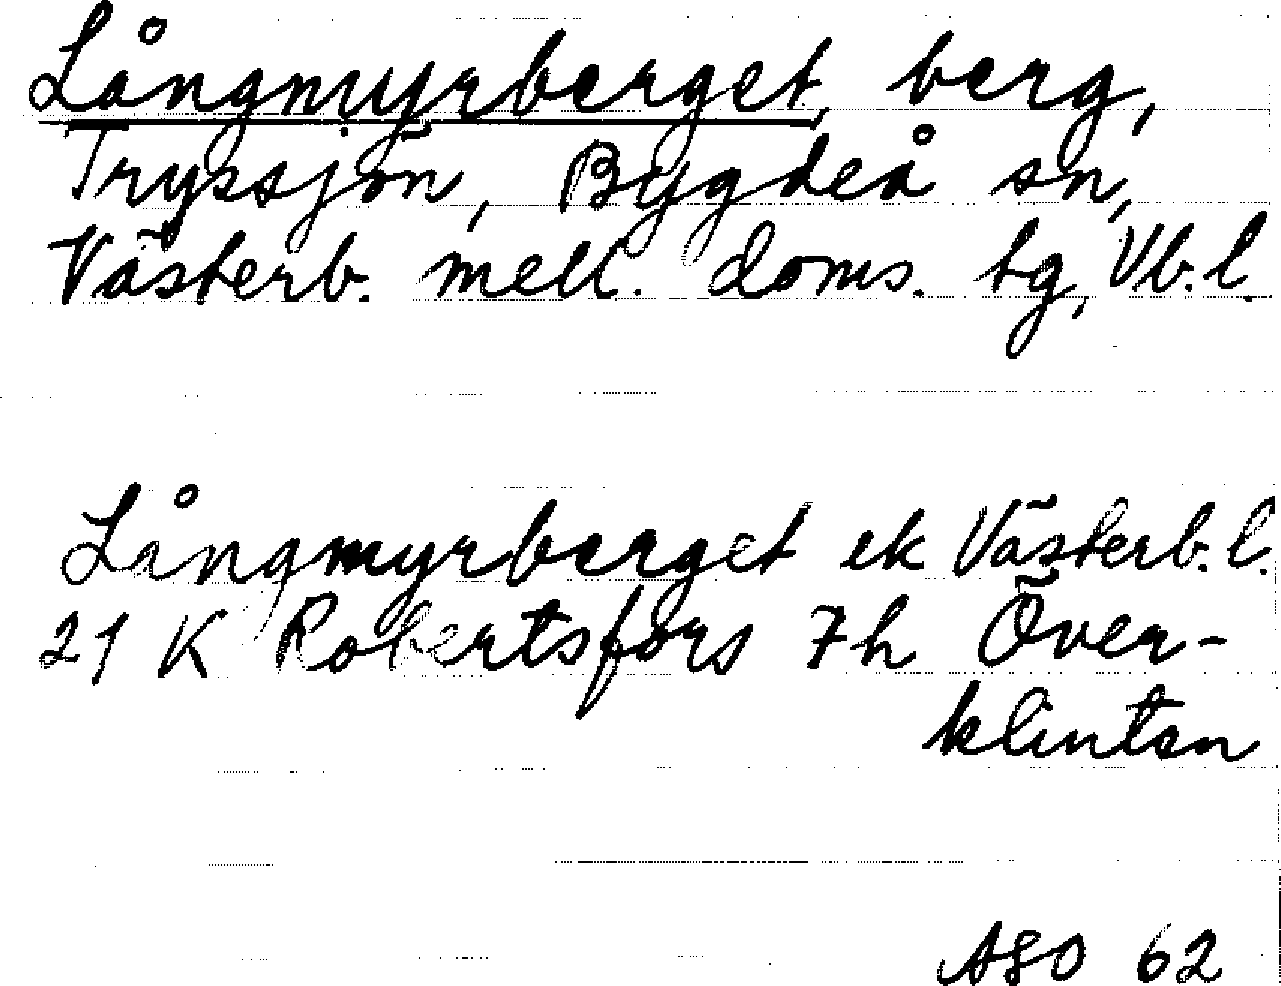 Långmyrberget, berg,
Tryssjön, Bygdeå sn,
Västerb. mell. doms. tg, Vb. l.
Långmyrberget ek Västerb. l.
21 K Robertsfors 7h Över-
klinten
ASO 62